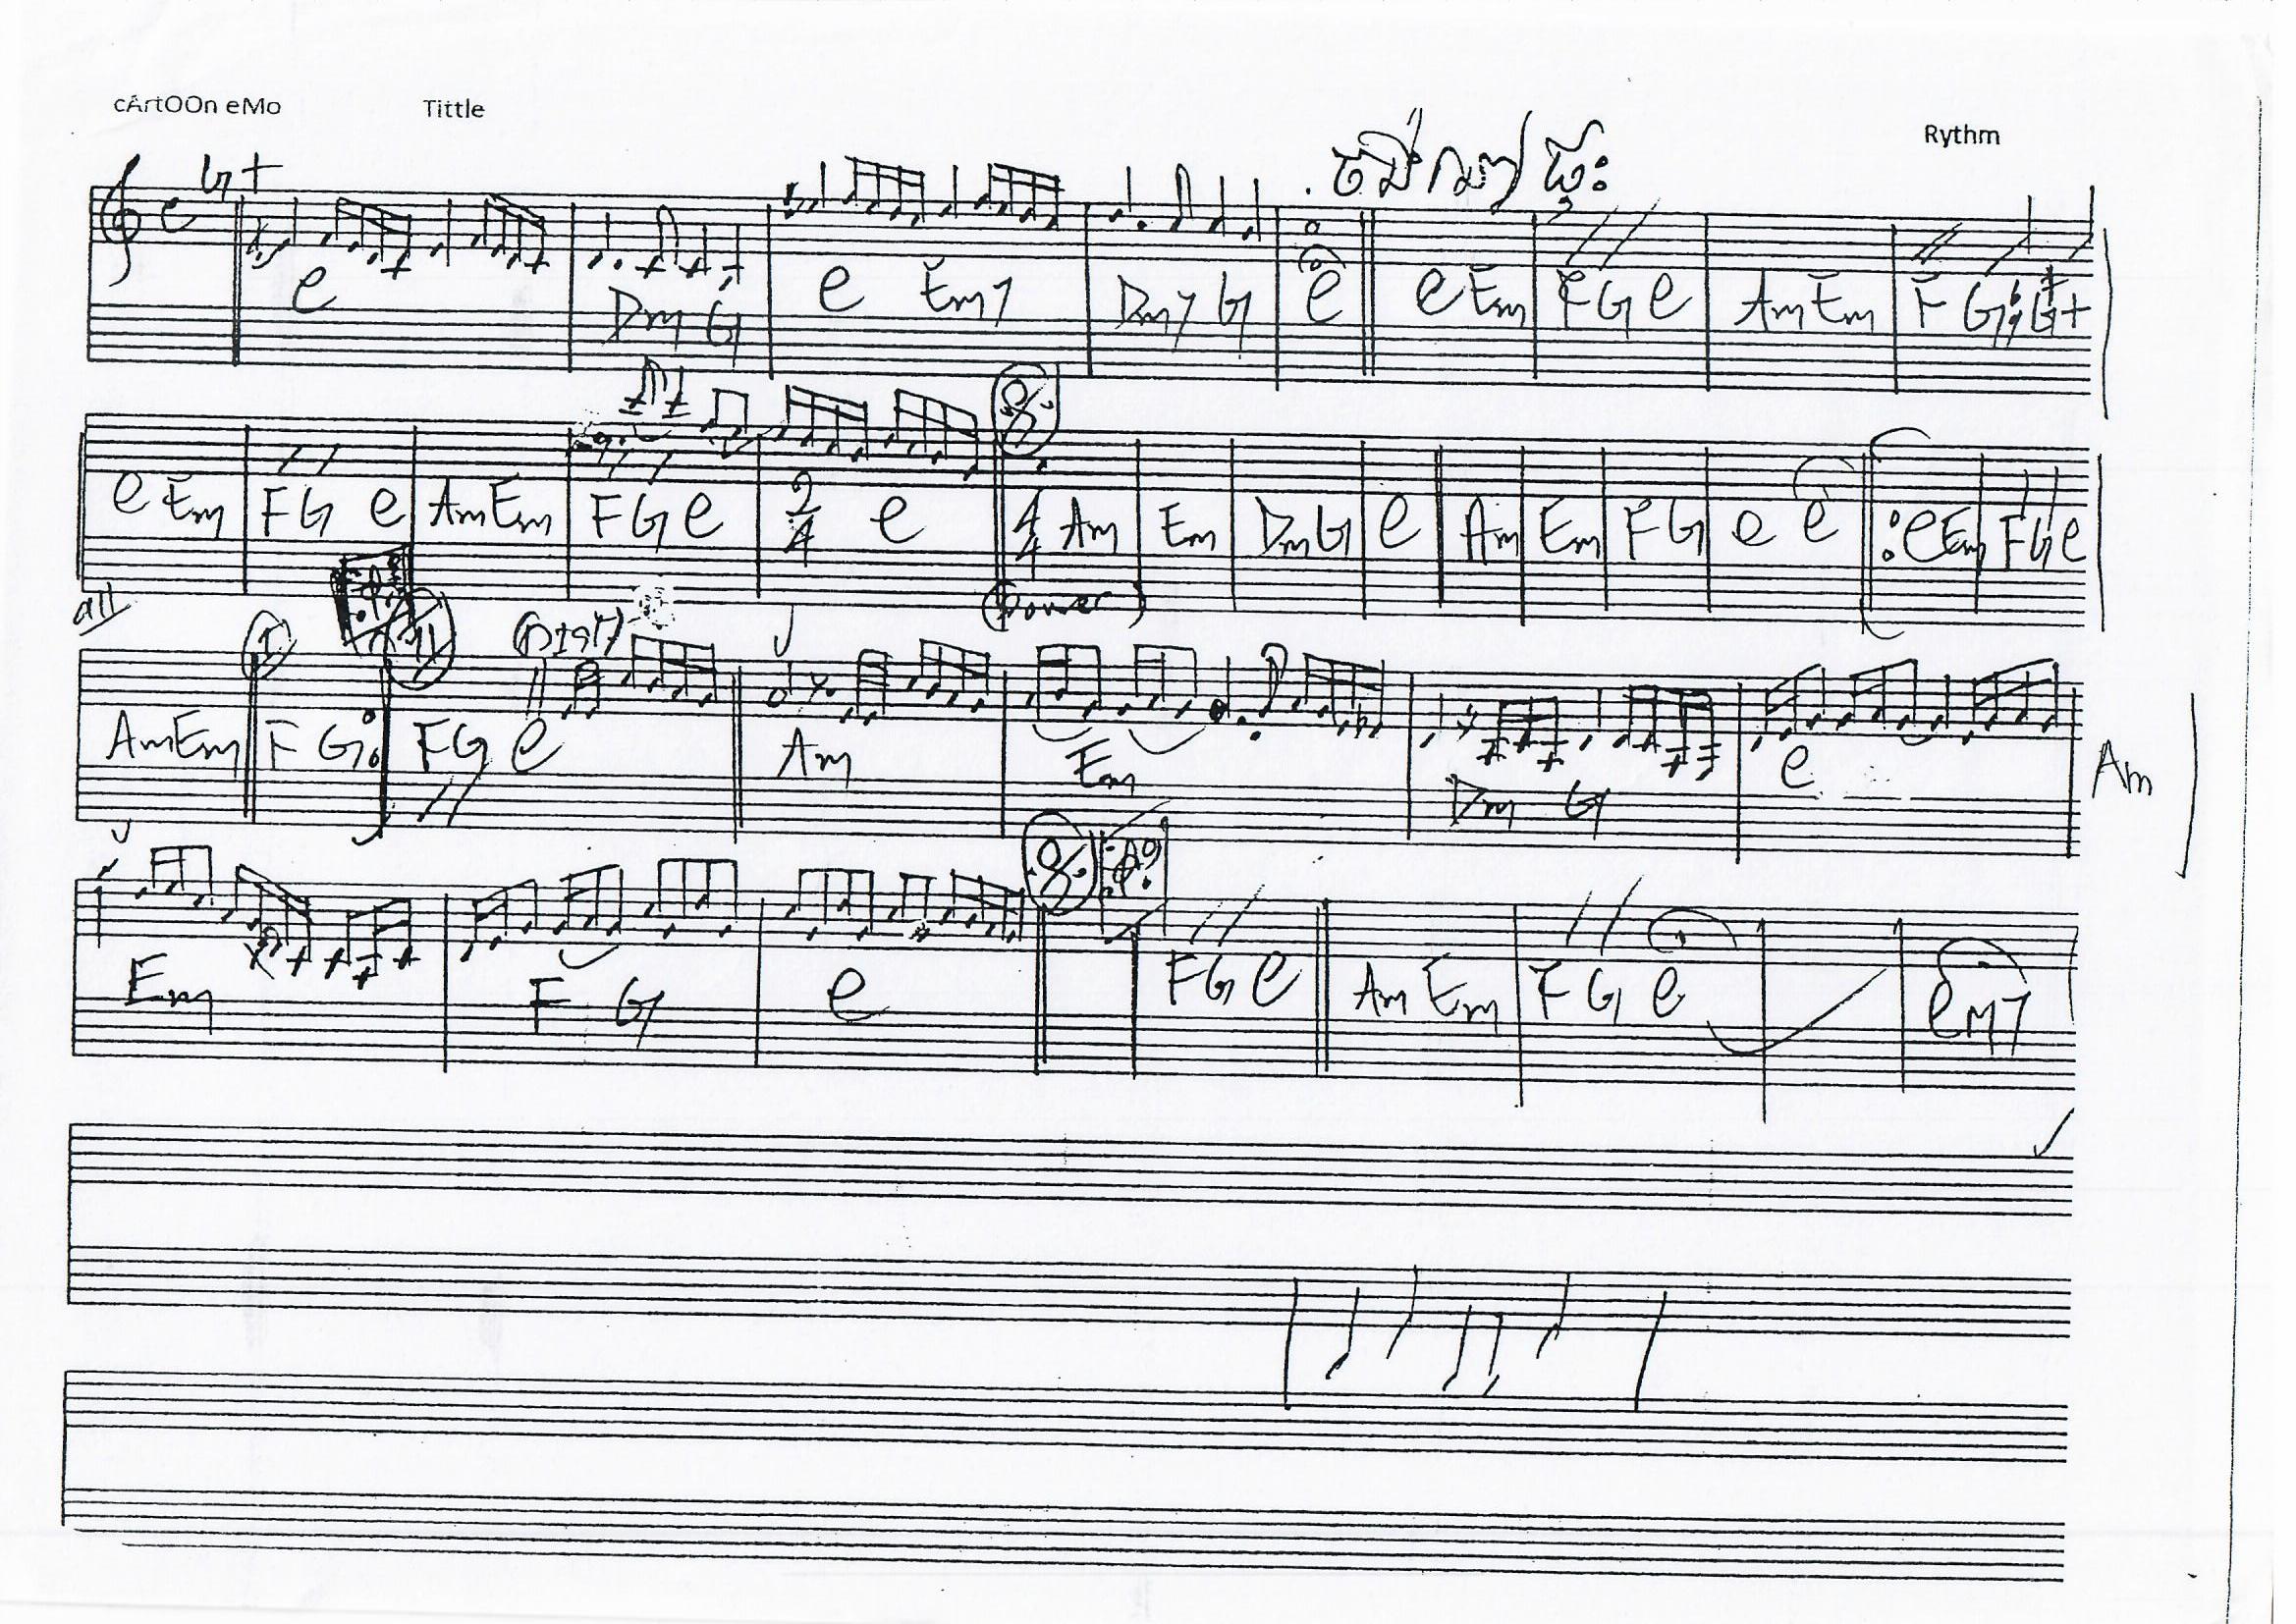 cArtOOn eMo Tittle Rythm
G+
C Dm G C Em7 Dm7 G C C Em F G C Am Em F G G+
C Em F G C Am Em F G C 2/4 C 4/4 Am Em Dm G C Am Em F G C C C Em F G C
all (power)
(Dist)
Am Em F G F G C Am Em Dm G C Am
Em F G C F G C Am Em F G C CM7